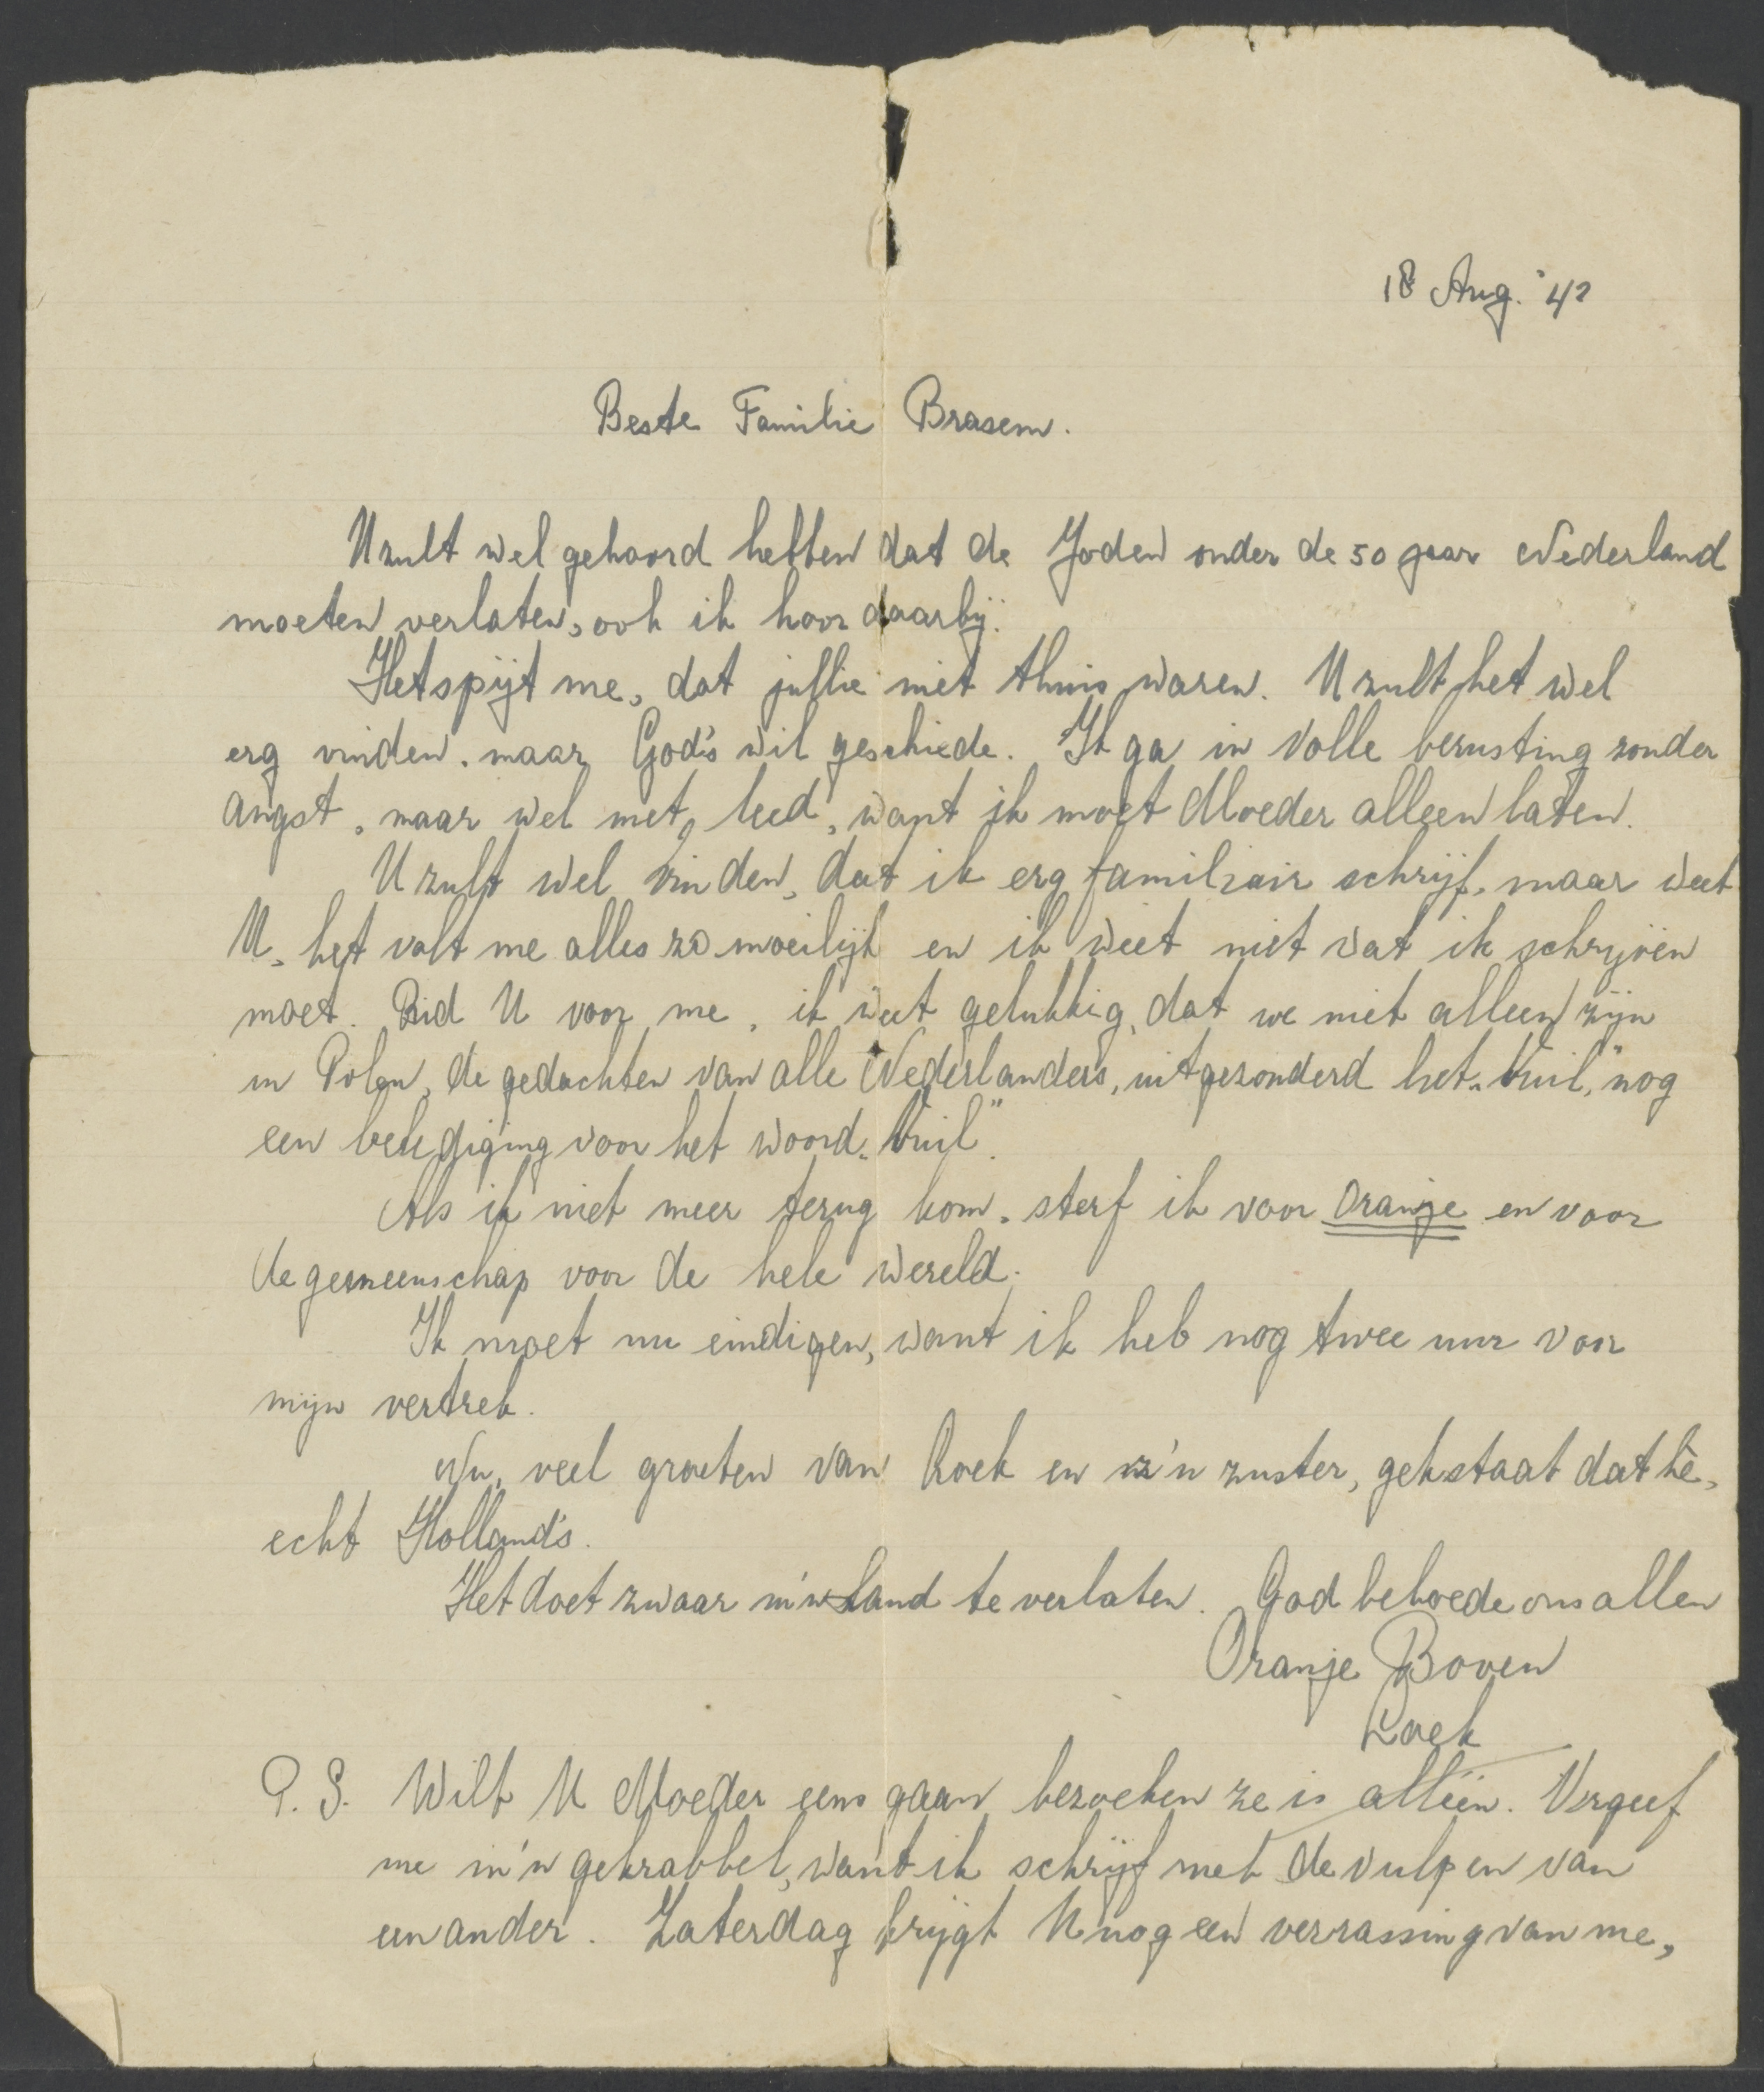 18 Aug. '42
Beste Familie Brasem.
U zult wel gehoord hebben dat de Joden onder de 50 jaar Nederland
moeten verlaten, ook ik hoor daarbij.
Het spijt me, dat jullie niet thuis waren. U zult het wel
erg vinden, maar God's wil geschiede. Ik ga in volle berusting zonder
angst, maar wel met leed, want ik moet Moeder alleen laten.
U zult wel vinden, dat ik erg familiair schrijf, maar weet
U, het valt me alles zo moeilijk en ik weet niet wat ik schrijven
moet. Bid U voor me, ik weet gelukkig, dat we niet alleen zijn
in Polen, de gedachten van alle Nederlanders, uitgezonderd het „Vuil," nog
een belediging voor het woord „Vuil".
Als ik niet meer terug kom, sterf ik voor Oranje en voor
de gemeenschap voor de hele wereld.
Ik moet nu eindigen, want ik heb nog twee uur voor
mijn vertrek.
Nu, veel groeten van Loek en z'n zuster, gek staat dat hè,
echt Hollands.
Het doet zwaar m'n land te verlaten. God behoede ons allen
Oranje Boven
Loek
P.S. Wilt U Moeder eens gaan bezoeken ze is alléén. Vergeef
me m'n gekrabbel, want ik schrijf met de vulpen van
een ander. Zaterdag krijgt U nog een verrassing van me,